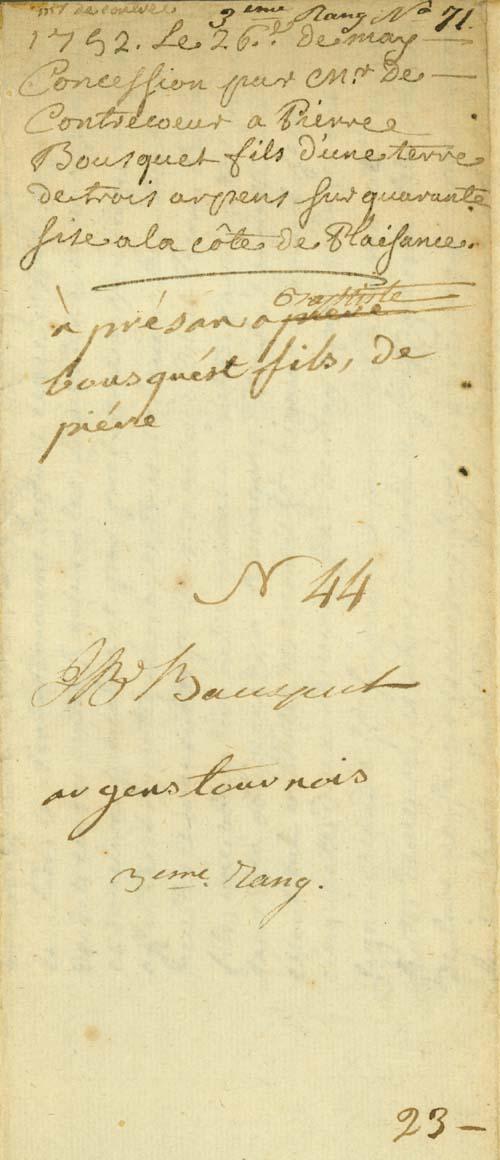 3eme Rang No 71.
1752. Le 26e de may —
Concession par Mr. De —
Contrecoeur a Pierre
Bousquet fils d'une terre
de trois arpens sur quarante
sise a la côte de Plaisance.
Baptiste
à présan a piere
bousquést fils, de
piére
N 44
JBt Bousquet
argens tournois
3eme. Rang.
23 —